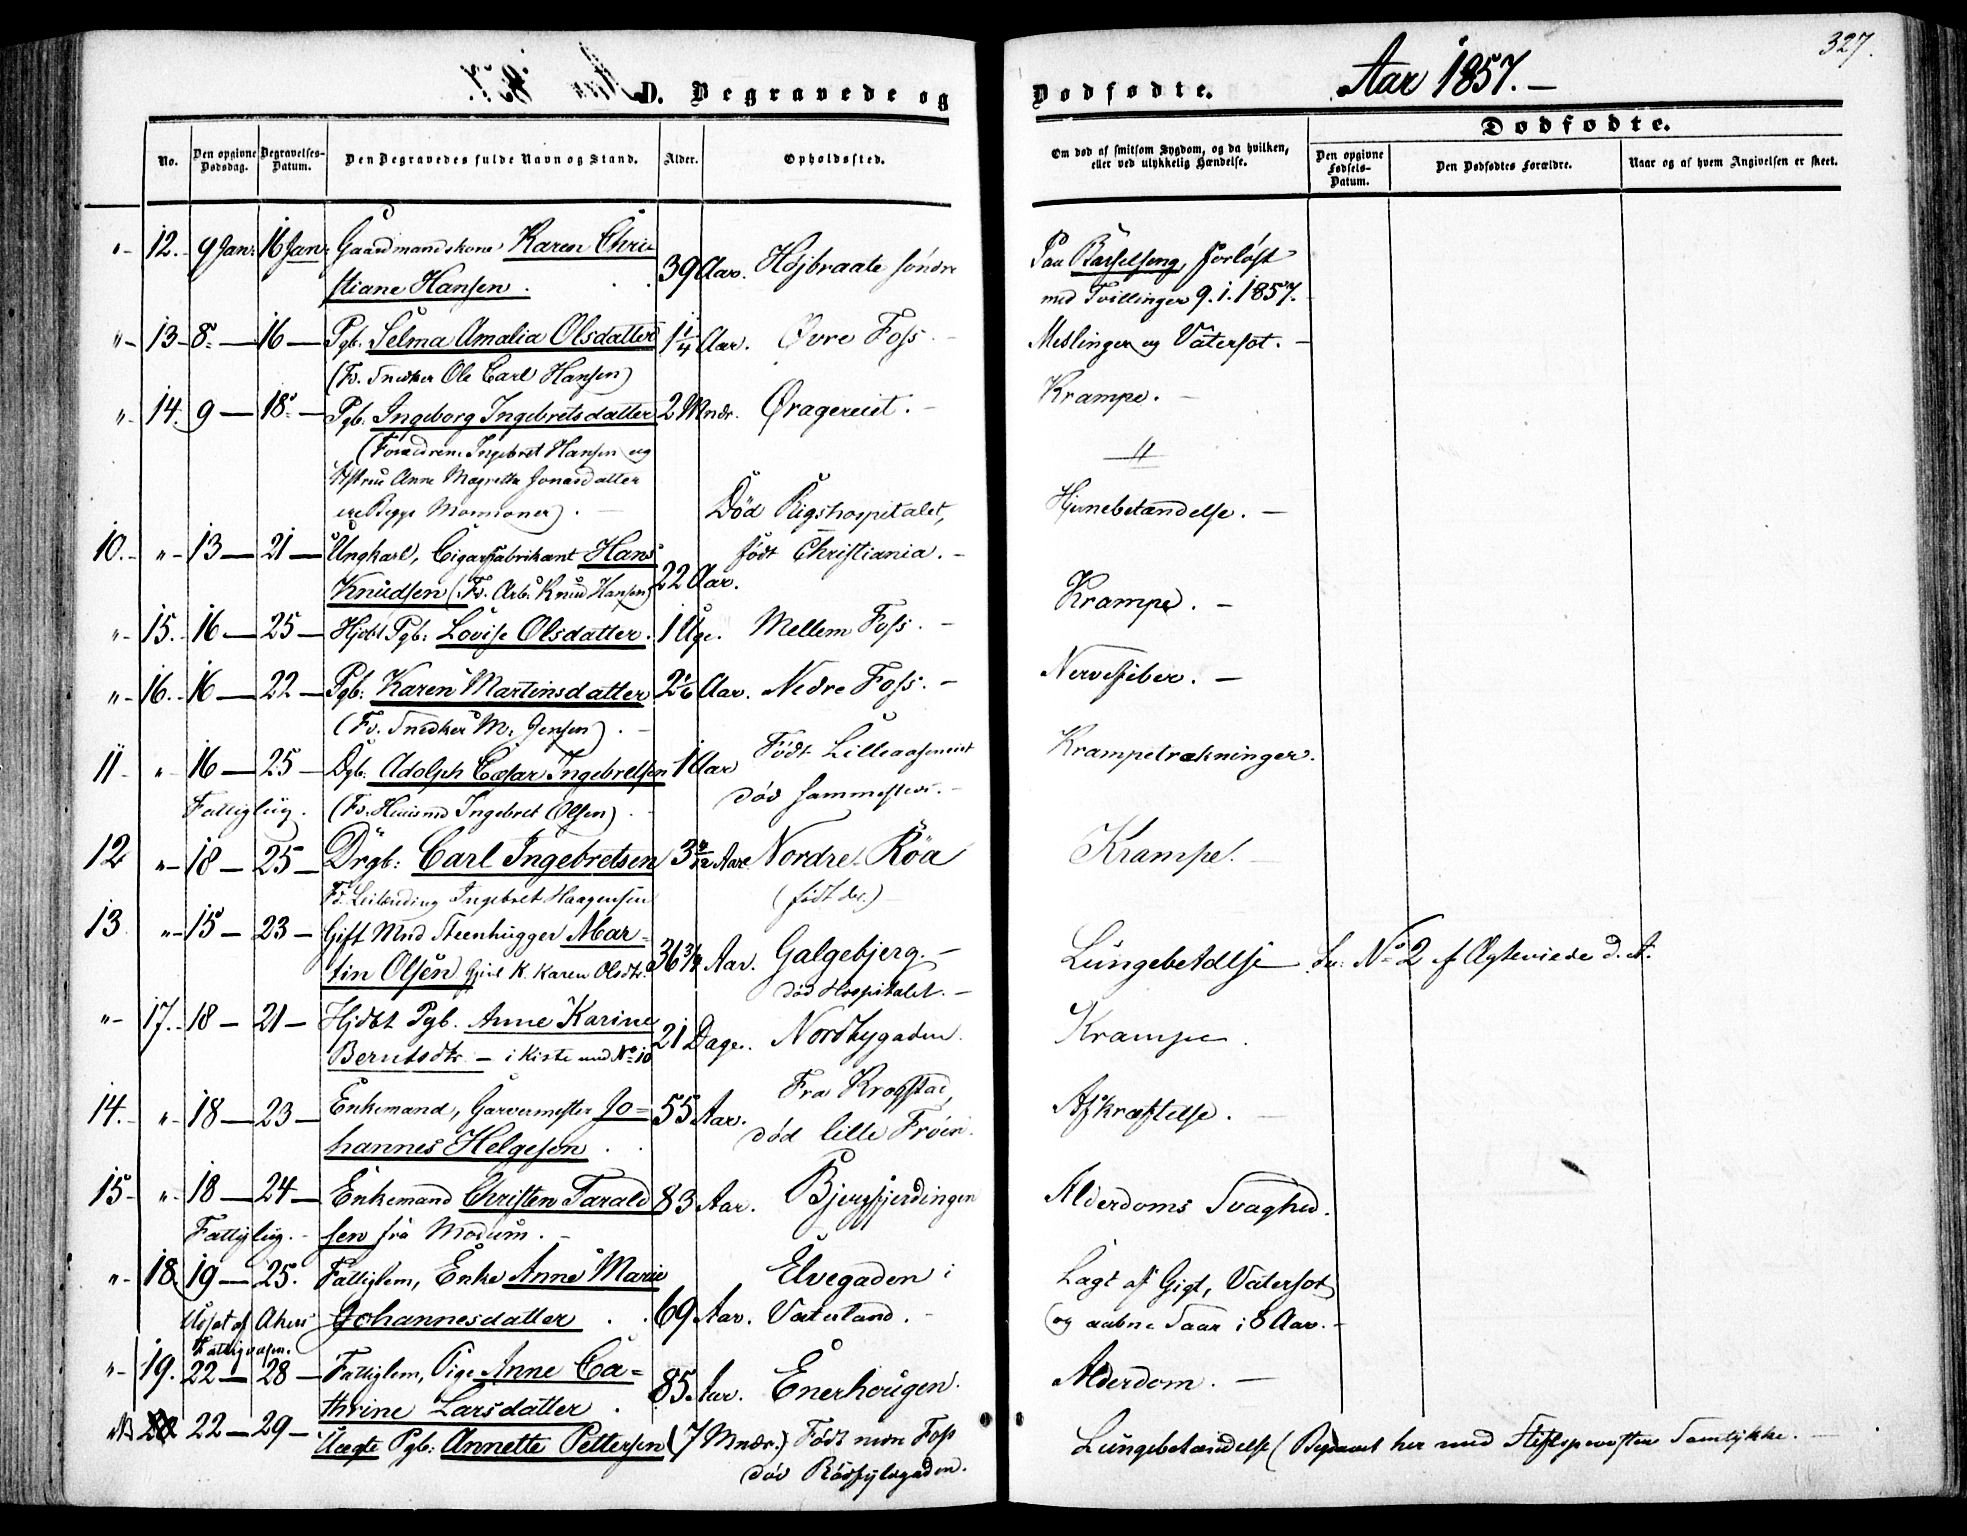 327.
D. Begravede og
Dødfødte.
Aar 1857.-
No.
Den opgivne Dødsdag.
Begravelses-Datum.
Den Begravedes fulde Navn og Stand.
Alder.
Opholdssted.
Om død af smitsom Sygdom, og da hvilken, eller ved ulykkelig Hændelse.
Dødfødte.
Den opgivne Fødsels-Datum.
Den Dødfødtes Forældre.
Naar og af hvem Angivelsen er skeet.
"- 12. 9 Jan: 16 Jan: Gaardmandskone Karen Chri
stiane Hansen. 39 Aar. Højbraate søndre
Paa Barselseng, forløst
med Tvillinger 9.1.1857.
"- 13- 8 — 16 — Pgb. Selma Amalia Olsdatter 1 1/4 Aar. Øvre Foss. -
Meslinger og Vatersot. -
(Fv. Snedker Ole Carl Hansen)
"- 14. 9 — 18 — Pgb. Ingeborg Ingebretsdatter 2 Mndr. Ørageneiet. -
Krampe. -
(Forældrene Ingebret Hansen og
Hstru Anne Magrethe Jonasdatter
ere Begge Mormoner). -
"
10. "- 13 — 21 — Ungkarl, Cigarfabrikant Hans
Knudsen (Fv. Arb. Knud Hansen) 22 Aar.
Død Rigshospitalet,
født Christiania. -
Hjernebetændelse. -
"- 15. 16 — 25 — Hjdbt Pgb: Lovise Olsdatter. 1 Uge. Mellem Foss. -
Krampe. -
"- 16. 16 — 22 — Pgb: Karen Martinsdatter 2 1/6 Aar. Nedre Foss. -
Nervefeber. -
(Fv. Snedker M. Jensen). -
11 - " 16 — 25 — Dgb. Adolph Cæsar Ingebretsen 1 Aar
Født Lilleaaseneiet
død sammesteds. -
Krampetrækninger.
Fattiglig. (Fv. Huusmd Ingebret Olsen).
12 "- 18 — 25 — Drgb: Carl Ingebretsen 3 Aar Nordre Röa
Krampe. -
Fv. Leilending Ingebret Haagensen
(født der) -
13. "- 15 — 23 — Gift Mnd Steenhugger Mar-
tin Olsen Gjivt K. Karen Olsdtr. 36 3/4 Aar. Galgebjerg. -
død Hospitalet. -
Lungebetdlse
Se: No 2 f Ægteviede d. A.
"- 17. 18 — 21 — Hjdbt Pgb. Anne Karine
Berntsdtr - i Kiste med No 10 21 Dage. Nordbygaden.
Krampe.
14. "- 18 — 23 — Enkemand, Garvermester Jo-
hannes Helgesen. 55 Aar.
Fra Krogstad,
død lille Frøen.
Afkræftelse. -
15- "- 18 — 24 — Enkemand Christen Tarald
sen fra Modum. - 83 Aar. Bjergfjerdingen
Alderdoms Svaghed.
Fattiglig. -
"- 18. 19 — 25. Fattiglem, Enke Anne Marie
Johannesdatter. 69 Aar.
Elvegaden i
Vaterland. -
Lagt af Gigt, Vatersot
og aabne Saar i 8 Aar. -
Udsat af Akers
Fattigvæsen.
"- 19. 22 — 28 — Fattiglem, Pige Anne Ca=
thrine Larsdatter. 85 Aar. Enerhougen.
Alderdom. -
NB 20 22 — 29 — Uægte Pgb: Annette Pettersen (7 Mndr.) Født Foss
død Rødfyldgaden.
Lungebetændelse (Begravet her med Stiftsprovsten Samtykke. -